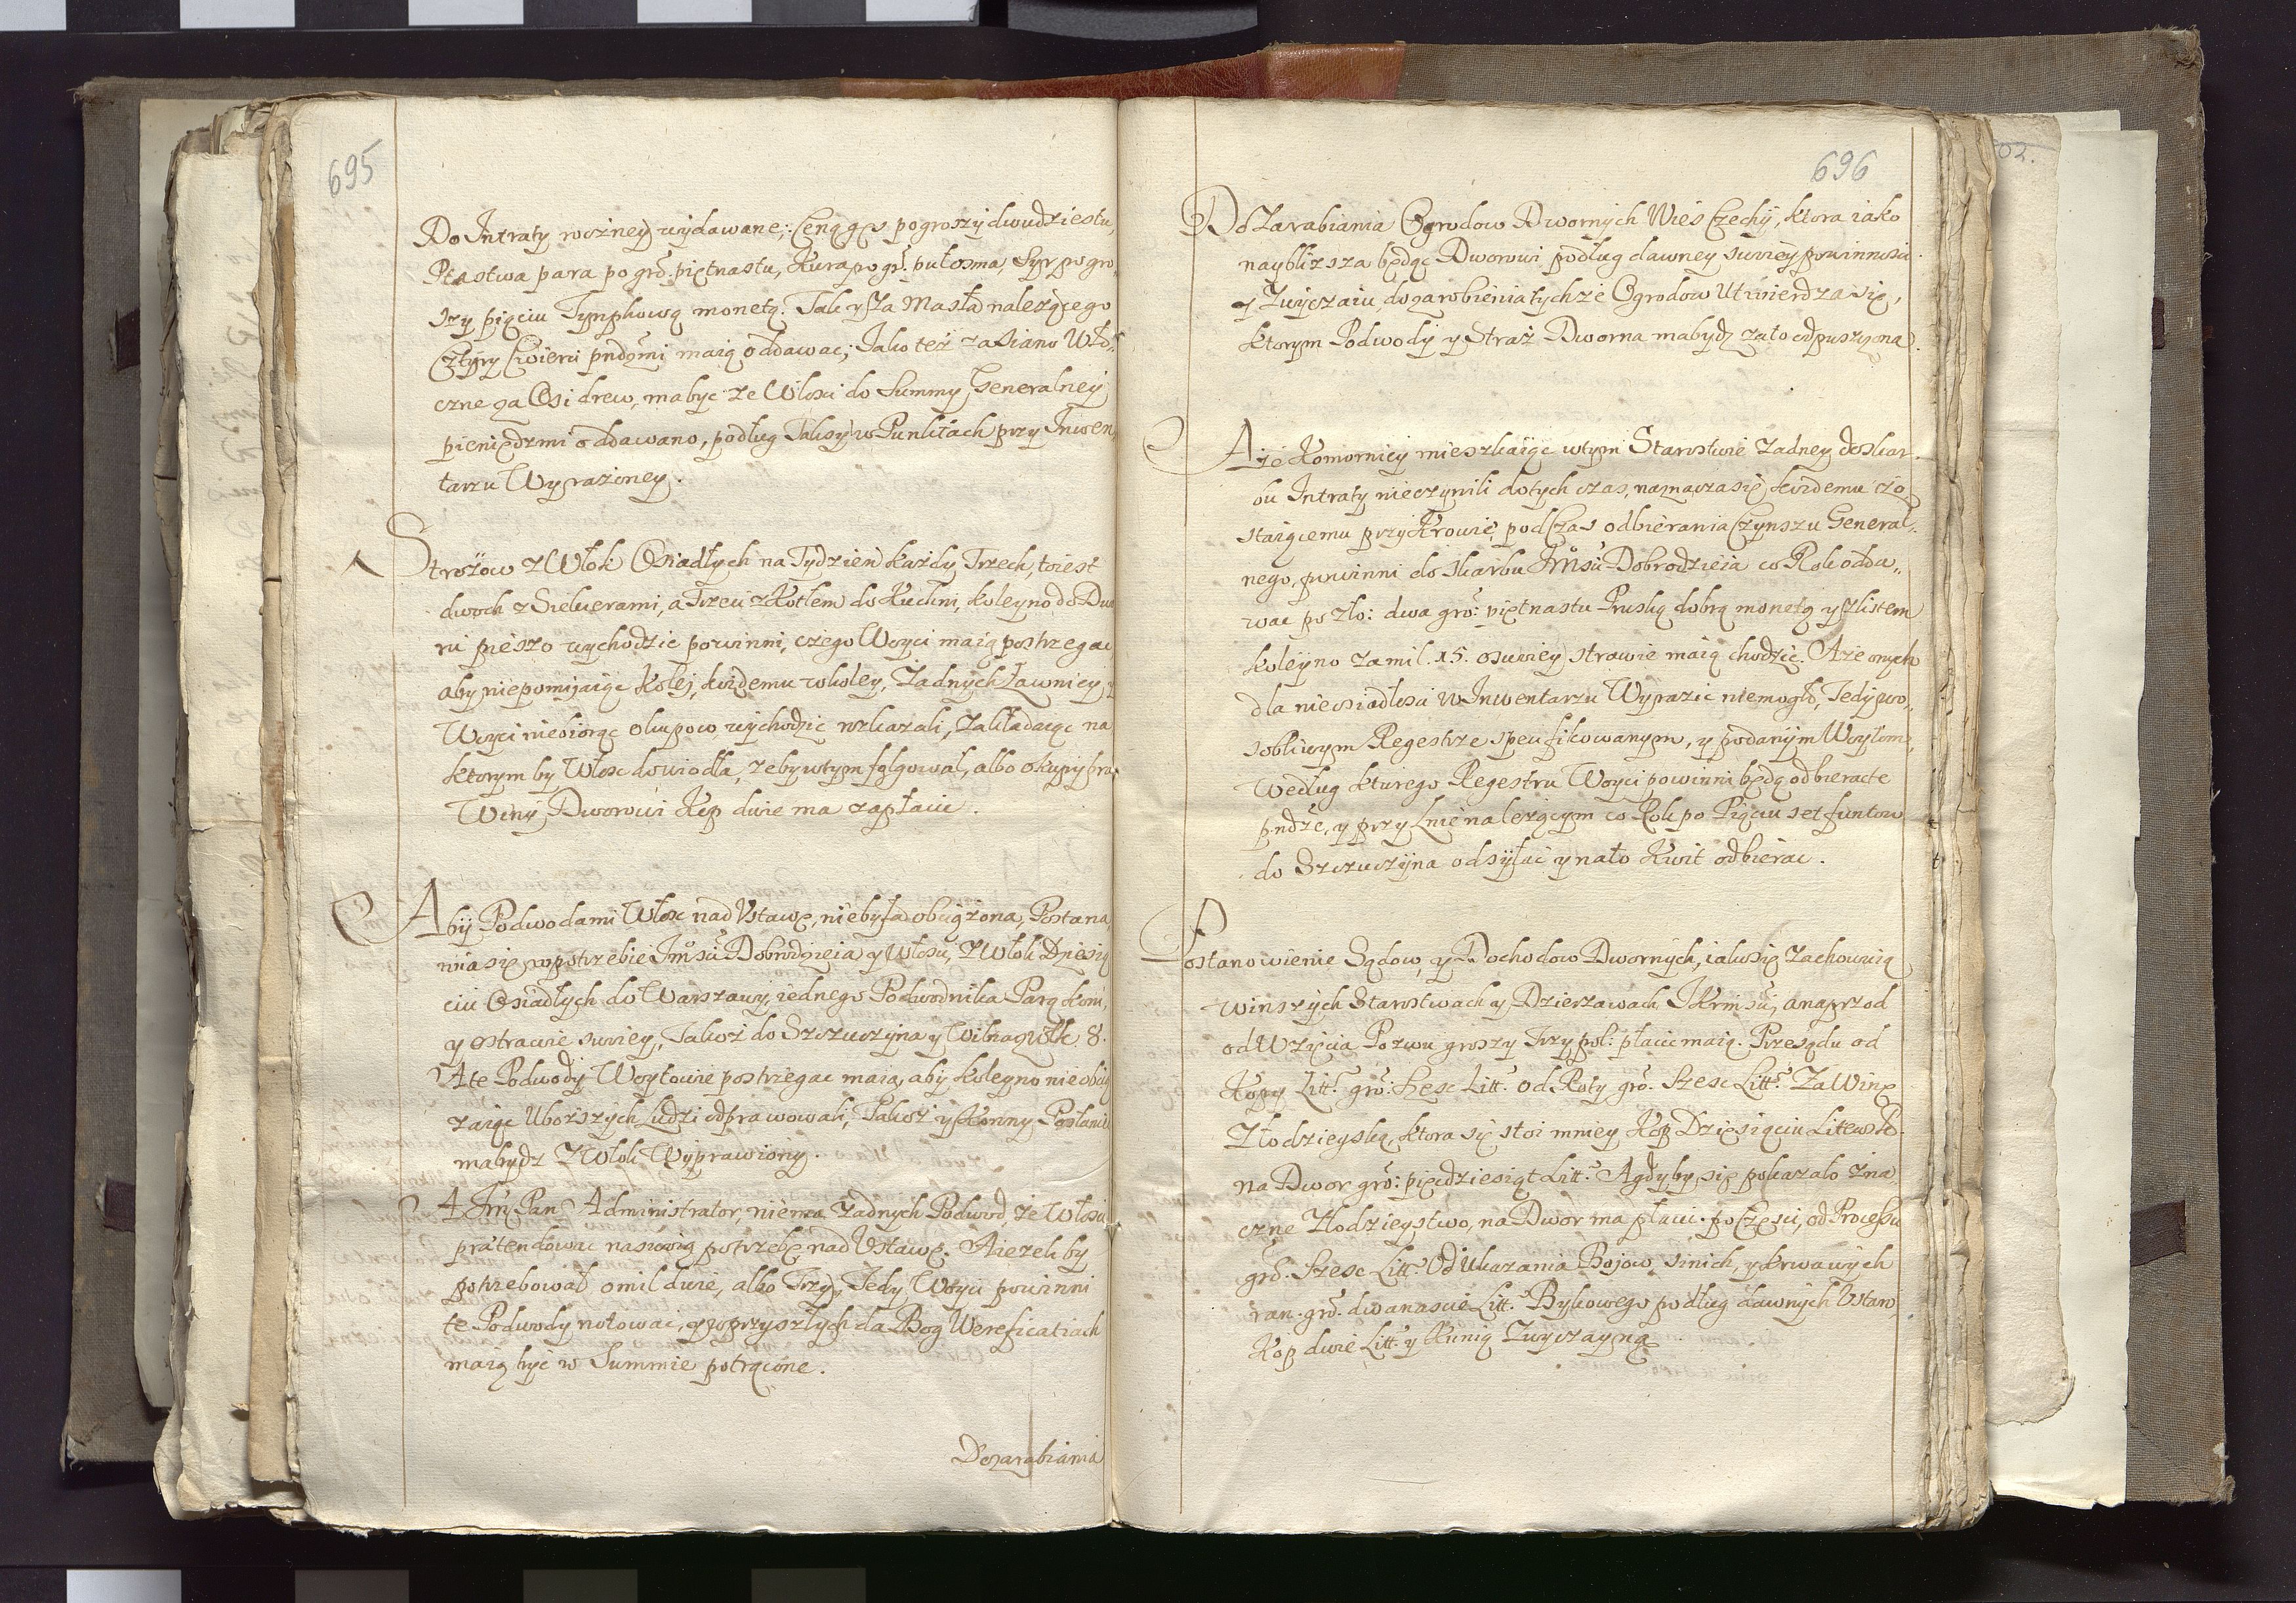 695
Do Intraty roczney wydawane; Ceną gęś po groszy dwudziestu,
Ptastwa para po gro. piętnastu, Kura po gr. pułosma, Syr po gro
szy pięciu Tynphową monetą. Tak y za Masła nalezącego
Cztyry Cwierci pndzmi maią oddawac; Iako też za Siano Wło
czne za Osi drew, ma byc ze Włosci do Summy Generalney
pieniędzmi oddawano, podług Taksy w Punktach przy Inwen
tarzu Wyrażoney.
Strożow z Włok Osiadłych na Tydzien każdy Trzech, to iest
dwoch z Siekierami, a Trzeci z Kotłem do Kuchni, koleyno do Dwo
ru pieszo wychodzic powinni, czego Woyci maią postrzegac
aby niepomijaiąc Kolej, każdemu w koley, Żadnych Ławnicy, y
Woyci niebiorąc okupow wychodzic rozkazali, zakładaiąc na
ktorym by Włosc dowiodła, zeby w tym folgował, albo okupy brał
Winy Dworowi Kop dwie ma zapłacic.
Aby Podwodami Włosc nad Ustawę, nie była obciążona, Postana
wia się w potrzebie Jmsci Dobrodzieia y Włosci, z Włok Dziesię
ciu Osiadłych do Warszawy, iednego Podwodnika Parą koni,
y o strawie swoiey, Takoż do Szczuczyna y Wilna z Włk 8.
A te Podwody Woytowie postrzegac maią, aby koleyno nie obcią
zaiąc Uboższych ludzi odprawowali, Takoż y Konny Posłaniec
ma bydz z Włok Wyprawiony.
A Jmć Pan Administrator, nie ma żadnych Podwod, ze Włosci
prætendowac na swoią potrzebę nad Ustawę. A iezeli by
potrzebował o mil dwie, albo Trzy, Tedy Woyci powinni
te Podwody notowac, y w przyszłych da Bog Wereficatiach
maią być w Summie potrącone.
Do zarabiania
696
Do Zarabiania Ogrodow Dwornych Wieś Czechy, ktora iako
naybliższa będąc Dworowi podług dawney swoiey powinnosci
y Zwyczaiu, do zarobienia tychże Ogrodow Utwierdza się,
ktorym Podwody y Straż Dworna ma bydz za to odpuszczona.
A że Komornicy mieszkaiąc w tym Starostwie żadney do Skar
bu Intraty nieczynili do tych czas, naznacza się każdemu zo
staiącemu przy Krowie, pod Czas odbierania Czynszu General
nego, powinni do Skarbu Jmsci Dobrodzieia co Rok odda
wac po zło: dwa gro: piętnastu Pruską dobrą monetą y z listem
koleyno za mil. 15. o swoiey strawie maią chodzic. A że onych
dla nieosiadłosci w Inwentarzu Wyrazic niemogło, Tedy w o
sobliwym Regestrze specifikowanym, y podanym Woytom,
Według kturego Regestru Woyci powinni będą odbierac te
pndze, y przy Lnie nalezącym co Rok po Pięciu set funtow
do Szczuczyna odsyłać y na to Kwit odbierac.
Postanowienie Sądow, y Dochodow Dwornych, iako się zachowuią
w inszych Starostwach y Dzierżawach JKrmsci, a naprzod
od Wzięcia Pozwu groszy Trzy pol: płacic maią. Przesądu od
Kopy Litt. gro: Szesc Litt. Od Roty gro. Szesc Litt. Za Winę
Złodzieyską, ktora się stoi mniey Kop Dziesięciu Litewsk.
na Dwor gro: pięcdziesiąt Litt. A gdyby się pokazało zna
czne Złodzieystwo, na Dwor ma płacic po Częsci, od Processu
gro. Szesc Litt. Od Ukazania Bojow sinich, y krwawych
ran. gro. dwanascie Litt. Bykowego podług dawnych Ustaw
Kop dwie Litt. y Kunią Zwyczayną